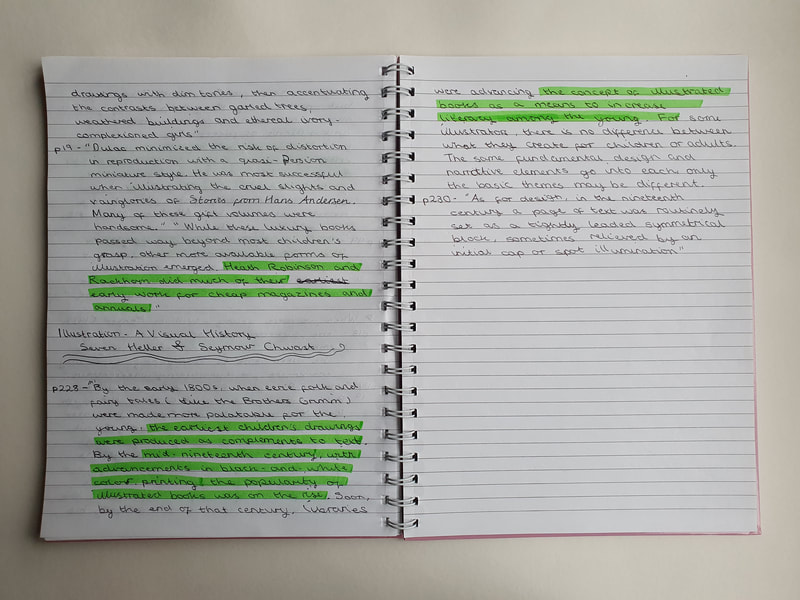 drawings with dim tones, then accentuating
the contrasts between garled trees,
weathered buildings and ethereal ivory-
complexioned girls"
p19 - "Dulac minimized the risk of distortion
in reproduction with a quasi-Persian
miniature style. He was most successful
when illustrating the cruel slights and
vainglories of Stories from Hans Andersen.
Many of these gift volumes were
handsome." "While these luxury books
passed way beyond most children's
grasp, other more available forms of
illustration emerged. Heath Robinson and
Rackham did much of their earliest
early work for cheap magazines and
annuals."
Illustration - A Visual History
Seven Heller & Seymour Chwast
p228 - "By the early 1800s, when eerie folk and
fairy tales (like the Brothers Grimm)
were made more palatable for the
young, the earliest children's drawings
were produced as complements to text.
By the mid-nineteenth century, with
advancements in black-and-white
colour printing, the popularity of
illustrated books was on the rise. Soon,
by the end of that century, libraries
were advancing the concept of illustrated
books as a means to increase
literacy among the young. For some
illustrators, there is no difference between
what they create for children or adults.
The same fundamental design and
narrative elements go into each, only
the basic themes may be different.
p230 - "As for design, in the nineteenth
century a page of text was routinely
set as a tightly leaded symmetrical
block, sometimes relieved by an
initial cap or spot illumination"